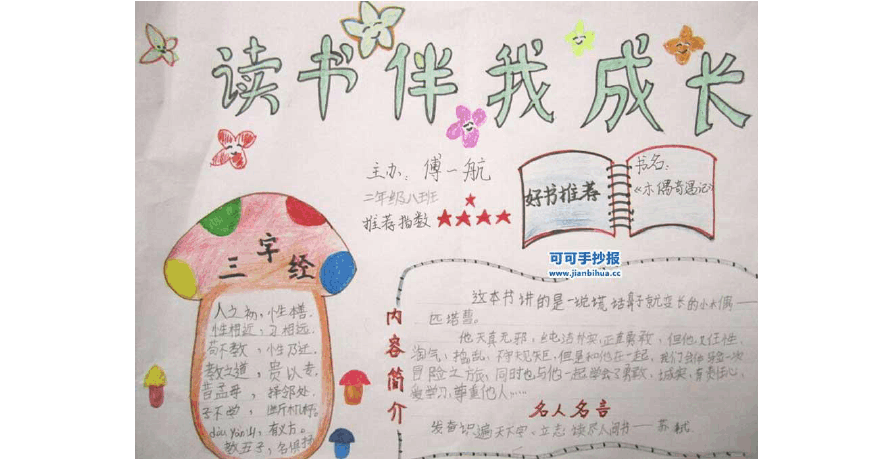 读书伴我成长
主办：傅一航
二年级八班
推荐指数
好书推荐
书名：
《木偶奇遇记》
可可手抄报
www.jianbihua.cc
三字经
人之初，性本善.
性相近，习相远.
苟不教，性乃迁.
教之道，贵以专.
昔孟母，择邻处.
子不学，断机杼.
dòu yān山，有义方。
教五子，名俱扬
内容简介
这本书讲的是一说谎话鼻子就变长的小木偶——
匹诺曹。
他天真无邪，纯洁朴实，正直勇敢，但他又任性，
淘气，捣乱，不守规矩，但是和他在一起，我们会体验一次
冒险之旅，同时也与他一起学会了勇敢，诚实，有责任心，
爱学习，尊重他人……
名人名言
发奋识遍天下字，立志读尽人间书——苏轼